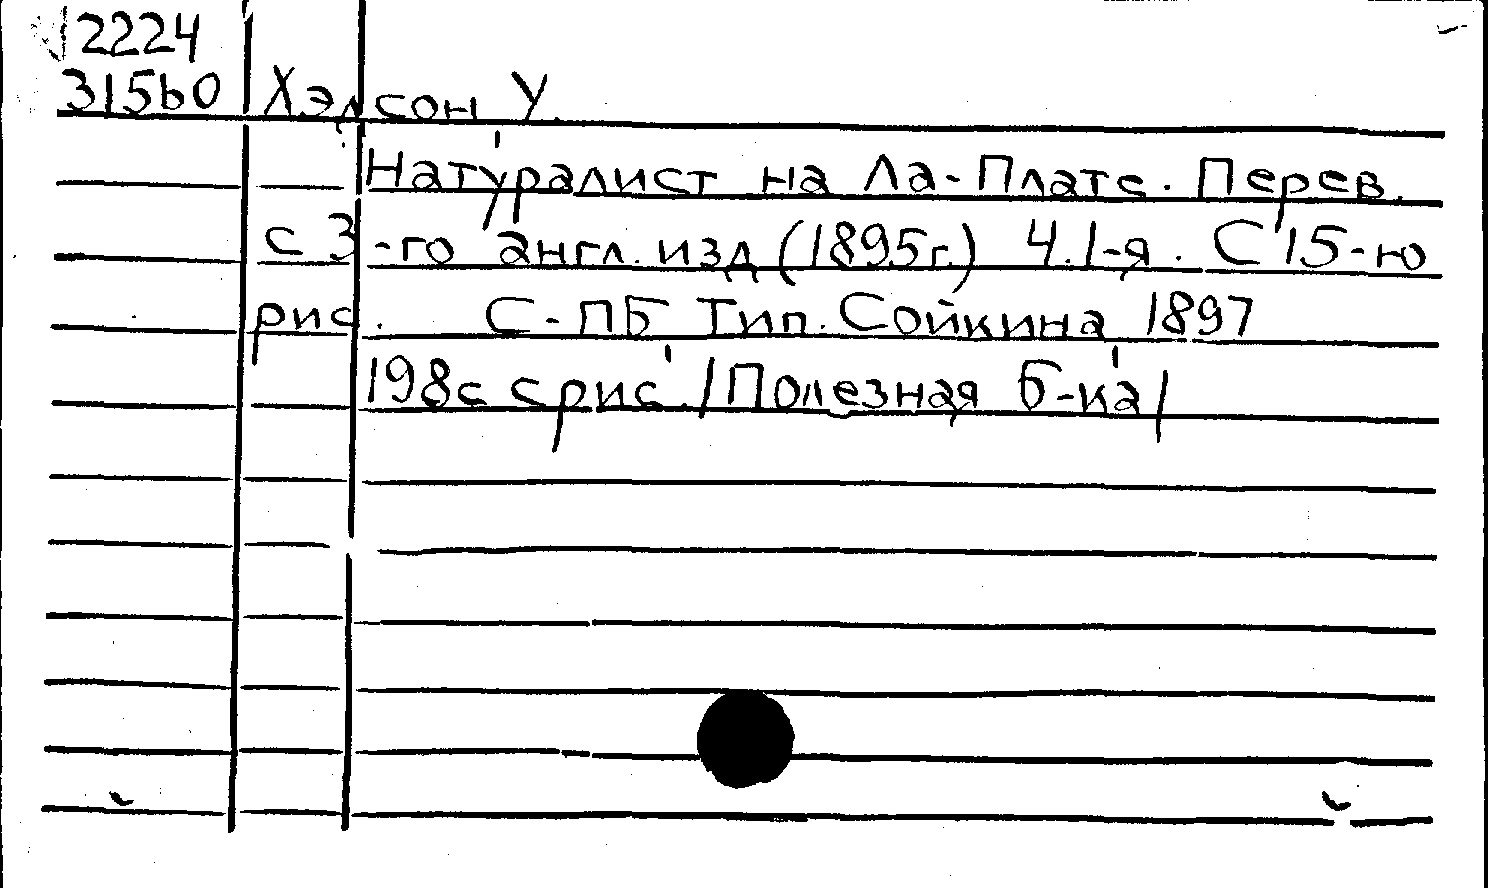 12224
31560 Хэдсон У.
Натуралист на Ла-Плате. Перев.
с 3-го англ. изд (1895г.) Ч.1-я. С 15-ю
рис. С-ПБ Тип. Сойкина 1897
198с с рис. /Полезная б-ка/